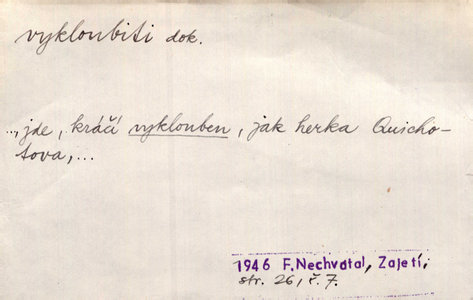 vykloubiti dok.
..., jde, kráčí vyklouben, jak herka Quicho-
tova,...
1946 F. Nechvátal, Zajetí,
str. 26, č. 7.